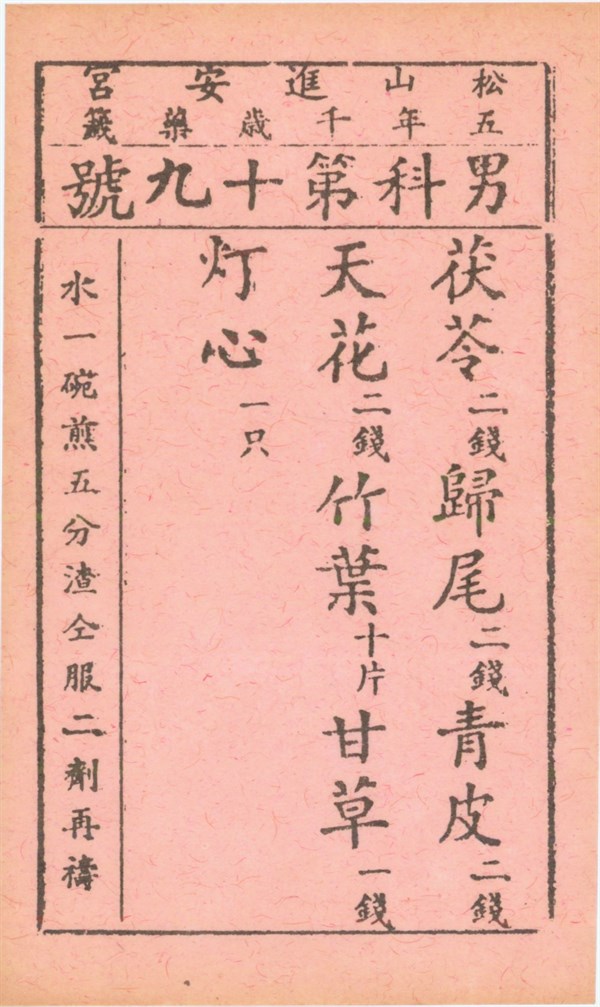 松山進安宮
五年千歲藥籤
男科第十九號
茯苓二錢歸尾二錢青皮二錢
天花二錢竹葉十片甘草一錢
灯心一只
水一碗煎五分渣仝服二劑再禱